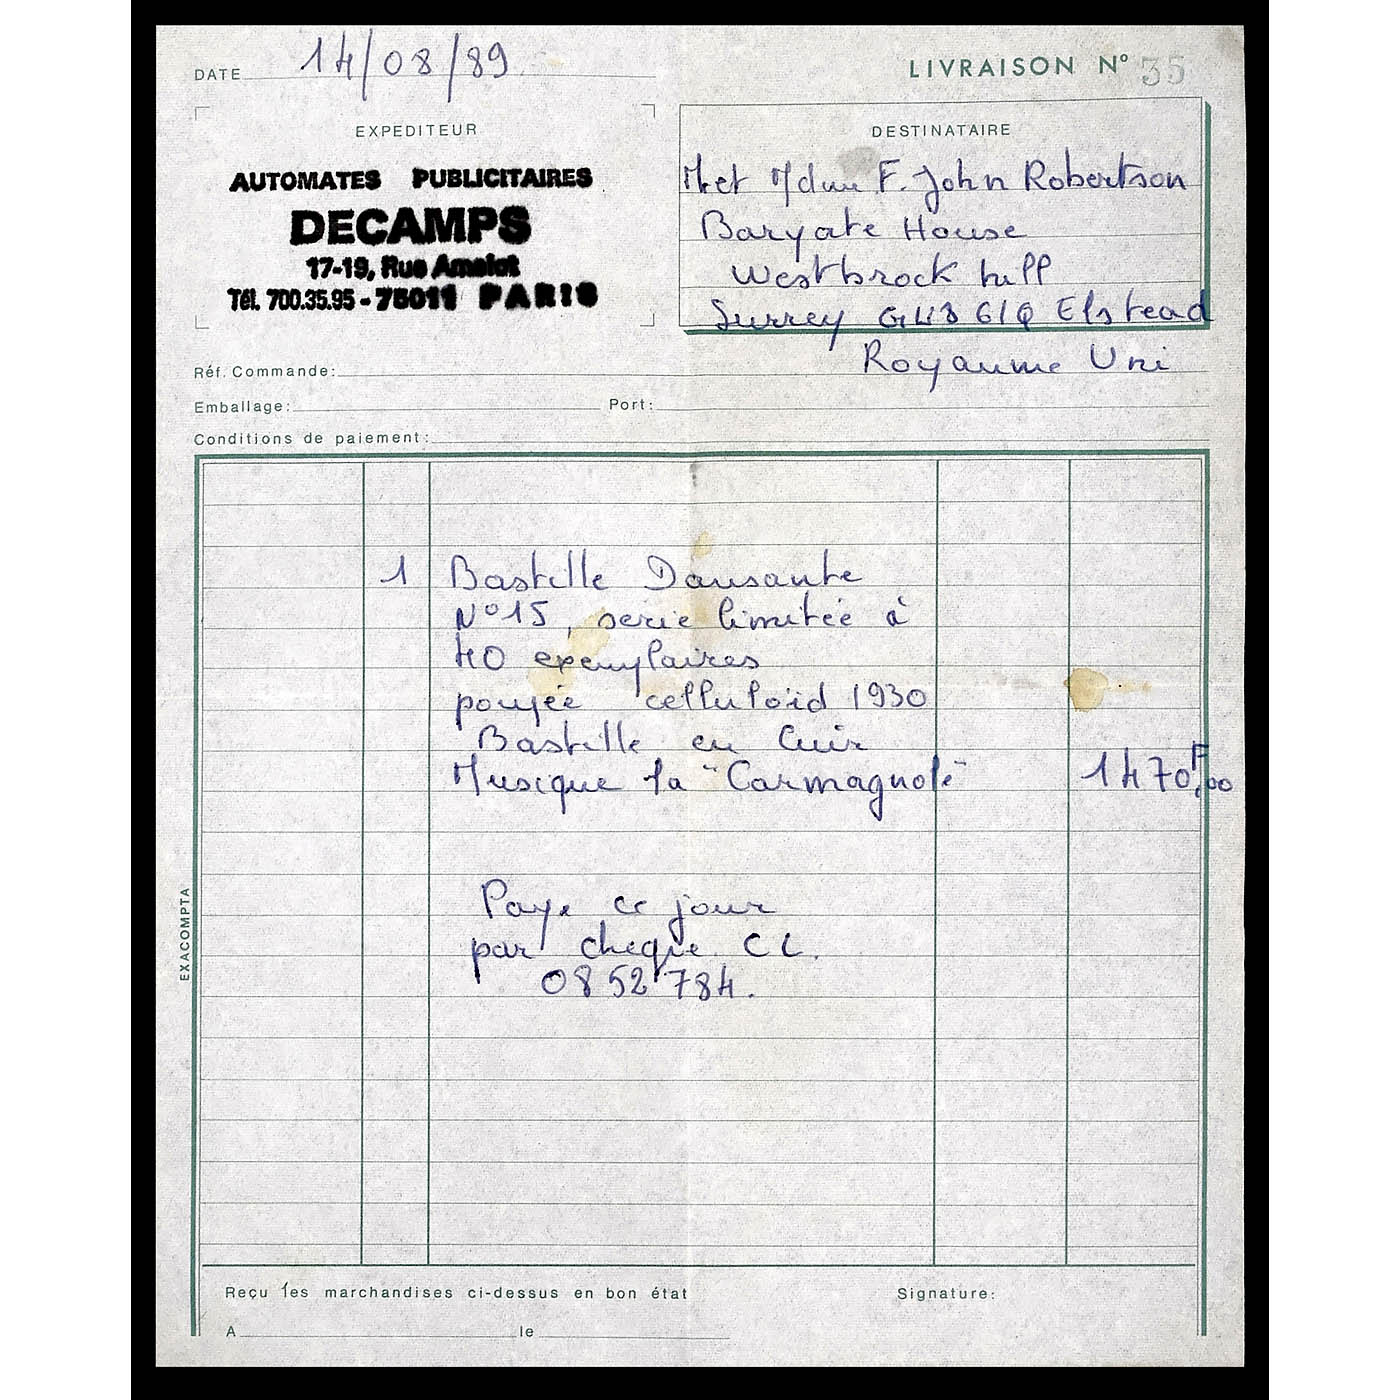 DATE 14/08/89
LIVRAISON N° 35
EXPEDITEUR
AUTOMATES PUBLICITAIRES
DECAMPS
17-19, Rue Amelot
Tél. 700.35.95 - 75011 PARIS
DESTINATAIRE
F. John Robertson
House
Westbrock hill
Surrey GU8 Elstead
Royaume Uni
Réf. Commande:
Emballage: Port:
Conditions de paiement:
1 Bastille Dansante
N° 15, serie limitée à
40 exemplaires
poupée celluloïd 1930
Bastille en Cuir
Musique la "Carmagnole" 1470F,00
Paye ce jour
par cheque CL.
0852784.
EXACOMPTA
Reçu les marchandises ci-dessus en bon état
Signature:
A le